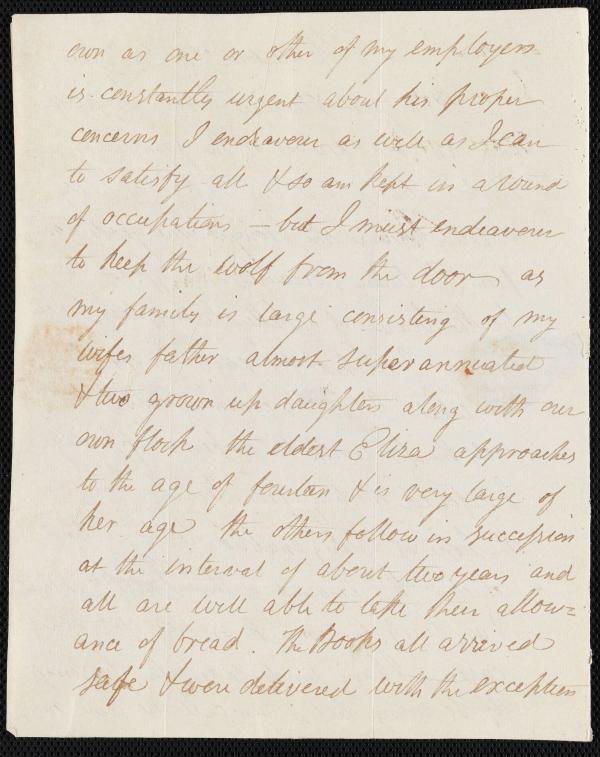 own as one or other of my employers
is constantly urgent about his proper
concerns I endeavour as well as I can
to satisfy all & so am kept in a round
of occupations – but I must endeavour
to keep the wolf from the door as
my family is large consisting of my
wifes father almost superannuated
& two grown up daughters along with our
own flock the eldest Eliza approaches
to the age of fourteen & is very large of
her age the others follow in succession
at the interval of about two years and
all are well able to take their allow=
ance of bread. The Books all arrived
safe & were delivered with the exception